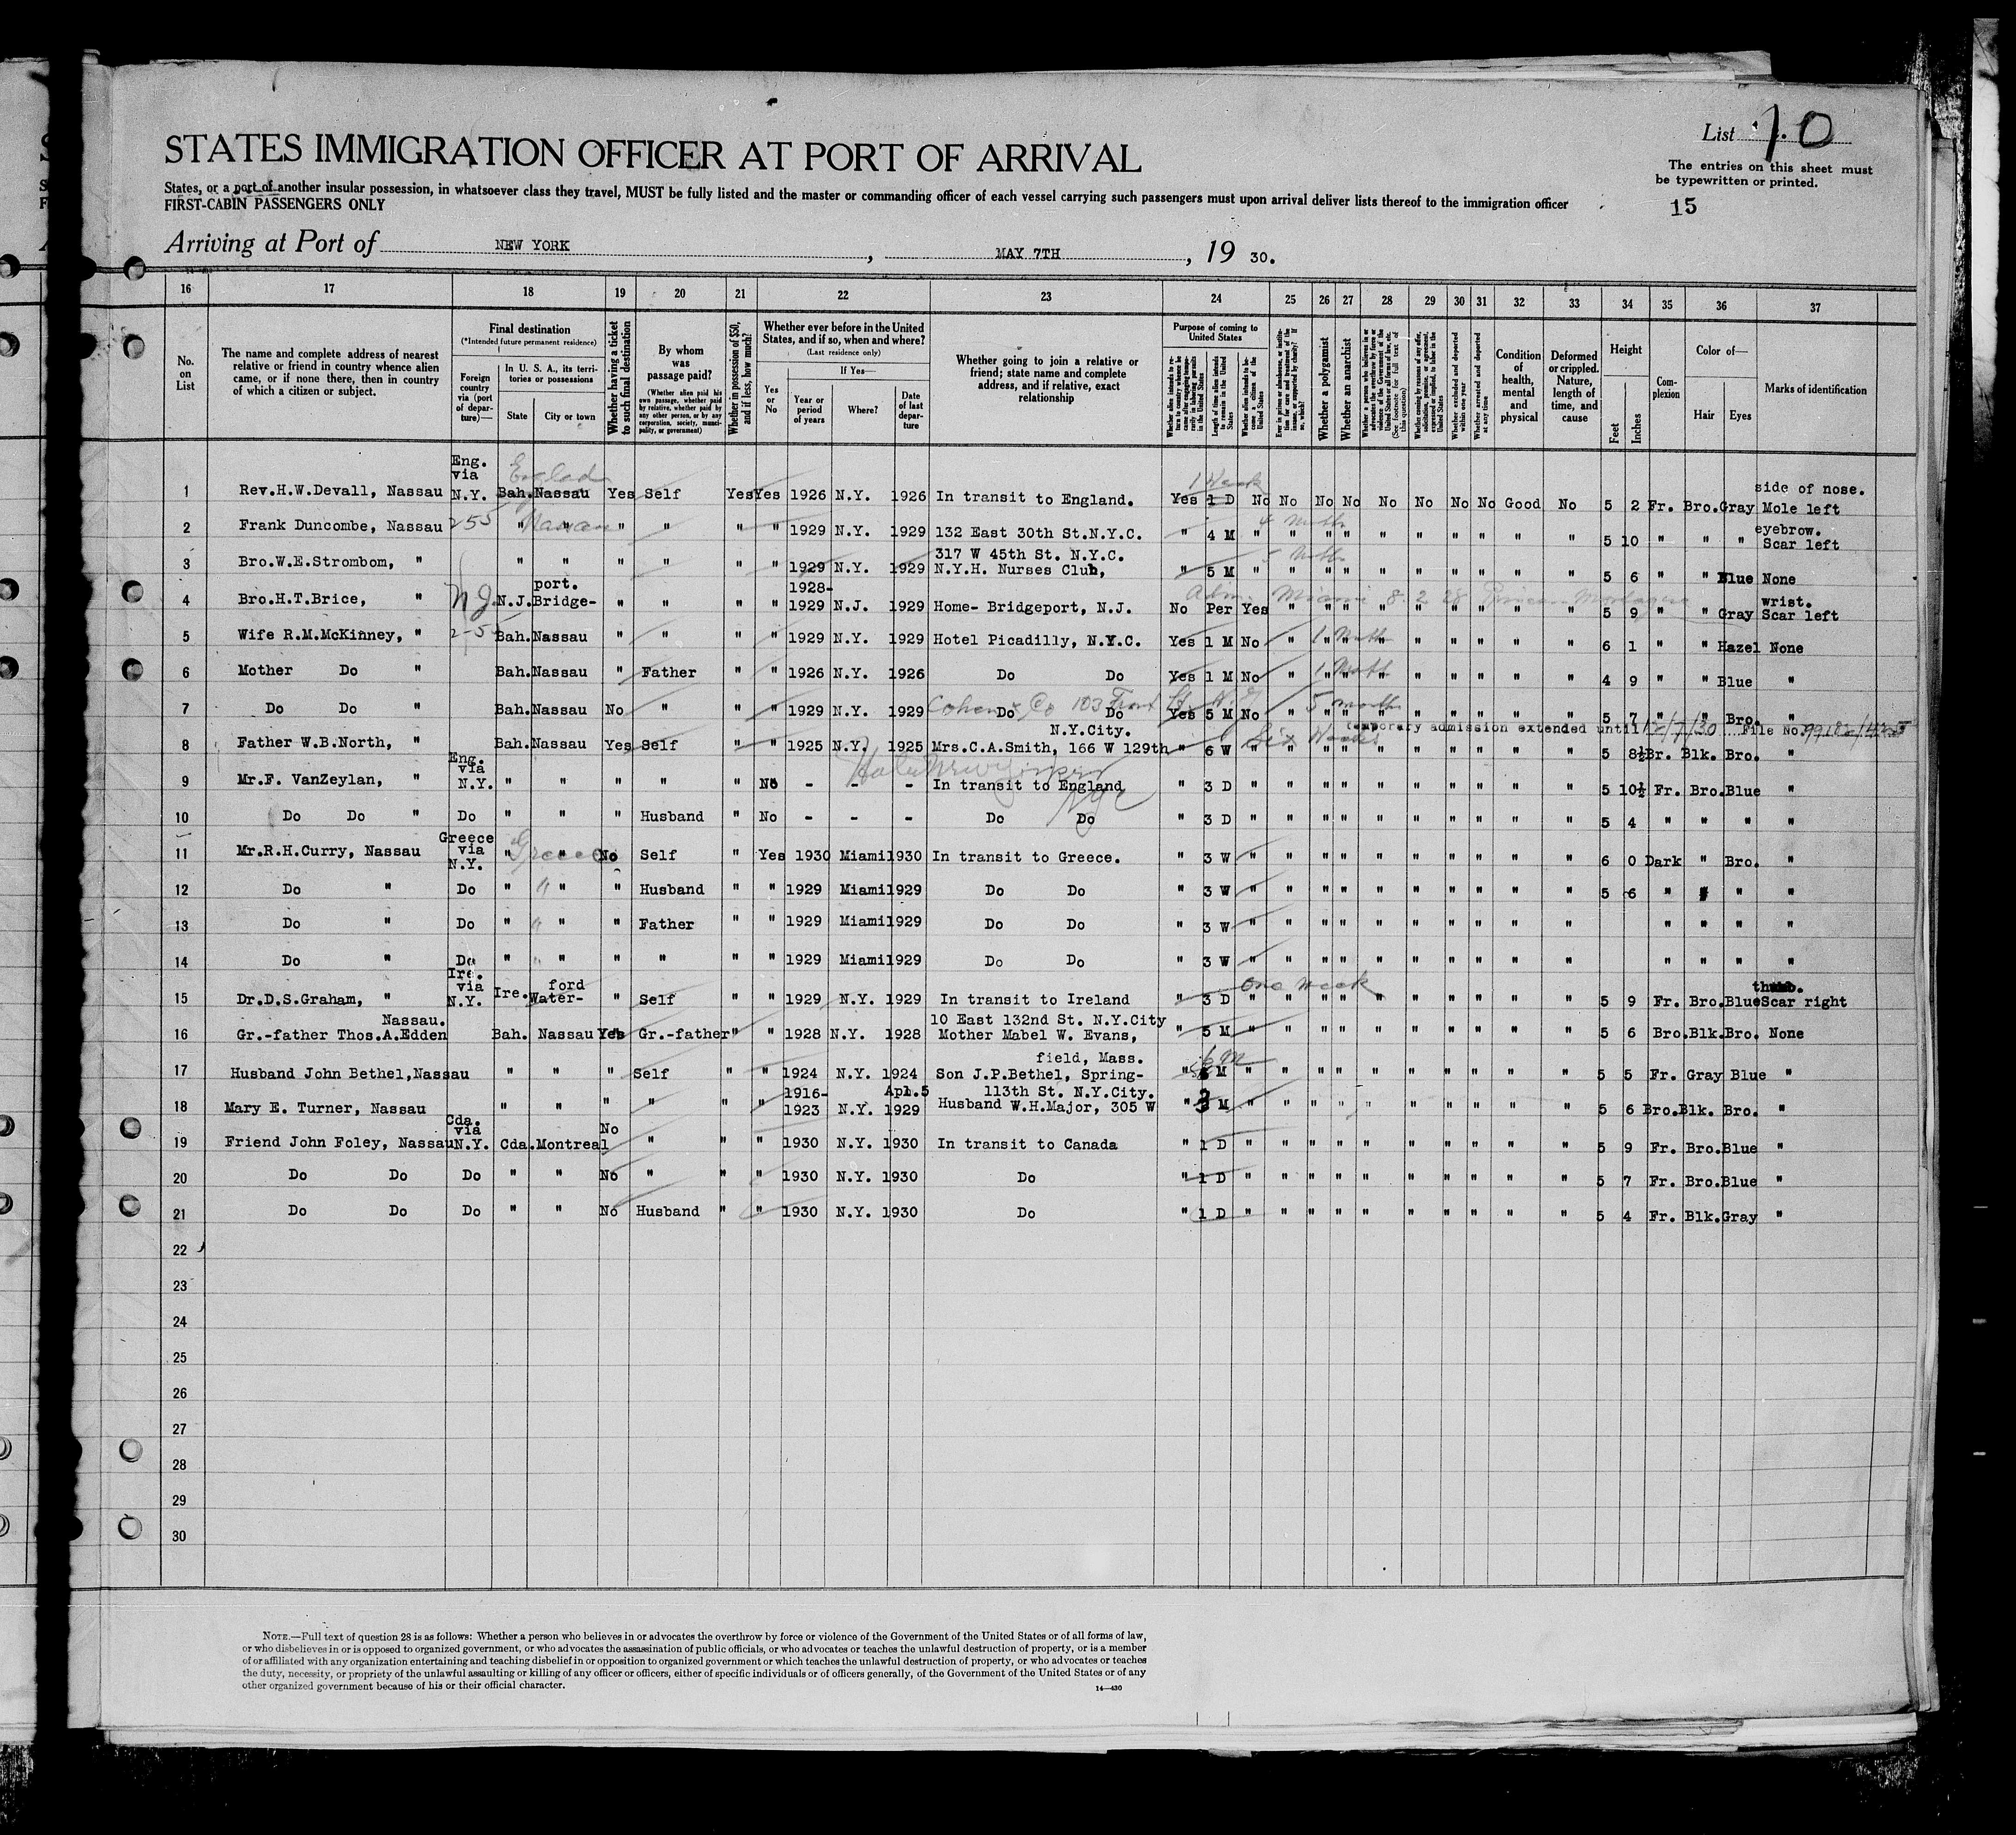 List 10
STATES IMMIGRATION OFFICER AT PORT OF ARRIVAL
The entries on this sheet must
be typewritten or printed.
States, or a port of another insular possession, in whatsoever class they travel, MUST be fully listed and the master or commanding officer of each vessel carrying such passengers must upon arrival deliver lists thereof to the immigration officer
FIRST-CABIN PASSENGERS ONLY
15
Arriving at Port of NEW YORK, MAY 7TH, 19 30.
16 17 18 19 20 21 22 23 24 25 26 27 28 29 30 31 32 33 34 35 36 37
No. on List
The name and complete address of nearest relative or friend in country whence alien came, or if none there, then in country of which a citizen or subject.
Final destination
(*Intended future permanent residence)
Foreign country via (port of departure)—
In U. S. A., its territories or possessions
State
City or town
Whether having a ticket to such final destination
By whom was passage paid?
(Whether alien paid his own passage, whether paid by relative, whether paid by any other person, or by any corporation, society, municipality, or government)
Whether in possession of $50, and if less, how much?
Whether ever before in the United States, and if so, when and where?
(Last residence only)
Yes or No
If Yes—
Year or period of years
Where?
Date of last departure
Whether going to join a relative or friend; state name and complete address, and if relative, exact relationship
Purpose of coming to United States
Length of time alien intends to remain in the United States
Whether alien intends to become a citizen of the United States
Whether a polygamist
Whether an anarchist
(See footnote for full text of this question)
Whether excluded and deported within one year
Whether arrested and deported at any time
Condition of health, mental and physical
Deformed or crippled. Nature, length of time, and cause
Height
Feet
Inches
Complexion
Color of—
Hair
Eyes
Marks of identification
Eng.
via England 1 Week side of nose.
1 Rev.H.W.Devall, Nassau N.Y. Bah. Nassau Yes Self Yes Yes 1926 N.Y. 1926 In transit to England. Yes 1 D No No No No No No No No Good No 5 2 Fr. Bro. Gray Mole left
eyebrow.
2 Frank Duncombe, Nassau 255 " " Nassau " " " " 1929 N.Y. 1929 132 East 30th St.N.Y.C. " 4 M " " " " " " " " " " 5 10 " " " Scar left
317 W 45th St. N.Y.C.
3 Bro.W.E.Strombom, " " " " " " " 1929 N.Y. 1929 N.Y.H. Nurses Club, " 5 M " " " " " " " " " " 5 6 " " Blue None
port. 1928- Adm. Miami 8. 2 28 wrist.
4 Bro.H.T.Brice, " N.J. Bridge- " " " " 1929 N.J. 1929 Home- Bridgeport, N.J. No Per Yes " " " " " " " " " 5 9 " " Gray Scar left
5 Wife R.M.McKinney, " 2-55 Bah. Nassau " " " " 1929 N.Y. 1929 Hotel Picadilly, N.Y.C. Yes 1 M No 1 Month " " " " " " " " " 6 1 " " Hazel None
6 Mother Do " Bah. Nassau " Father " " 1926 N.Y. 1926 Do Do Yes 1 M No 1 Month " " " " " " " " " 4 9 " " Blue "
7 Do Do " Bah. Nassau No " " " 1929 N.Y. 1929 Cohen & Co 103 Front St. N.Y. Do Do Yes 5 M No 5 months " " " " " " " " " 5 7 " " Bro. "
N.Y.City. Six Weeks temporary admission extended until 12/7/30 File No.
8 Father W.B.North, " Bah. Nassau Yes Self " " 1925 N.Y. 1925 Mrs.C.A.Smith, 166 W 129th " 6 W " " " " " " " " " " 5 8½ Br. Blk. Bro. "
Eng.
via
9 Mr.F. VanZeylan, " N.Y. " " " " " No - - - In transit to England " 3 D " " " " " " " " " " 5 10½ Fr. Bro. Blue "
10 Do Do " Do " " " Husband " No - - - Do Do " 3 D " " " " " " " " " " 5 4 " " " "
Greece
via Greece
11 Mr.R.H.Curry, Nassau N.Y. " " No Self " Yes 1930 Miami 1930 In transit to Greece. " 3 W " " " " " " " " " " 6 0 Dark " Bro. "
12 Do " Do " " " Husband " " 1929 Miami 1929 Do Do " 3 W " " " " " " " " " " 5 6 " " " "
13 Do " Do " " " Father " " 1929 Miami 1929 Do Do " 3 W " " " " " " " " " " " " " "
14 Do " Do " " " " " " 1929 Miami 1929 Do Do " 3 W " " " " " " " " " " " " " "
Ire.
via ford One week thumb.
15 Dr.D.S.Graham, " N.Y. Ire. Water- " Self " " 1929 N.Y. 1929 In transit to Ireland " 3 D " " " " " " " " " " 5 9 Fr. Bro. Blue Scar right
Nassau. 10 East 132nd St. N.Y.City
16 Gr.-father Thos.A.Edden Bah. Nassau Yes Gr.-father " " 1928 N.Y. 1928 Mother Mabel W. Evans, " 5 M " " " " " " " " " " 5 6 Bro. Blk. Bro. None
field, Mass. 6 M
17 Husband John Bethel, Nassau " " " Self " " 1924 N.Y. 1924 Son J.P.Bethel, Spring- " M " " " " " " " " " " 5 5 Fr. Gray Blue "
1916- Apl.5 113th St. N.Y.City.
18 Mary E. Turner, Nassau " " " " " " 1923 N.Y. 1929 Husband W.H.Major, 305 W " 3 M " " " " " " " " " " 5 6 Bro. Blk. Bro. "
Cda.
via No
19 Friend John Foley, Nassau N.Y. Cda. Montreal " " " 1930 N.Y. 1930 In transit to Canada " 1 D " " " " " " " " " " 5 9 Fr. Bro. Blue "
20 Do Do Do " " No " " " 1930 N.Y. 1930 Do " 1 D " " " " " " " " " " 5 7 Fr. Bro. Blue "
21 Do Do Do " " No Husband " " 1930 N.Y. 1930 Do " 1 D " " " " " " " " " " 5 4 Fr. Blk. Gray "
22
23
24
25
26
27
28
29
30
NOTE.—Full text of question 28 is as follows: Whether a person who believes in or advocates the overthrow by force or violence of the Government of the United States or of all forms of law,
or who disbelieves in or is opposed to organized government, or who advocates the assassination of public officials, or who advocates or teaches the unlawful destruction of property, or is a member
of or affiliated with any organization entertaining and teaching disbelief in or opposition to organized government or which teaches the unlawful destruction of property, or who advocates or teaches
the duty, necessity, or propriety of the unlawful assaulting or killing of any officer or officers, either of specific individuals or of officers generally, of the Government of the United States or of any
other organized government because of his or their official character.
14—430